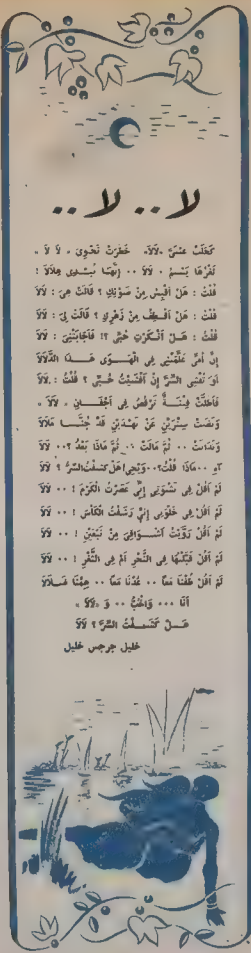 لا .. لا ..
كَحَلَتْ عَيْنَىَّ «لَالَا» خَطَرَتْ نَحْوِىَ « لَا لَا »
ثَغْرُهَا بَسْمَ « لَالَا » .. إِنَّهَا تُبْدِى هِلَالَا !
قُلْتُ : هَلْ أَقْبِسُ مِنْ ضَوْئِكِ ؟ قَالَتْ هِىَ : لَالَا
قُلْتُ : هَلْ أَقْطِفُ مِنْ زَهْرِكِ ؟ قَالَتْ لِىَ : لَالَا
قُلْتُ : هَلْ أَنْكَرْتِ حُبِّى ؟! فَأَجَابَتْنِى : لَالَا
إِنَّ أُمِّى عَلَّمَتْنِى فِى الْهَوَى هَذَا الدَّلَالَا
أَوَ تُفْشِى السِّرَّ إِنْ أَفْشَيْتُ حُبِّى ؟ قُلْتُ : لَالَا
فَأَطَلَّتْ فِتْنَةٌ تَرْقُصُ فِى أَجْفَانِ « لَالَا »
وَنَضَتْ سِتْرَيْنِ عَنْ نَهْدَيْنِ قَدْ جُنَّا مَلَالَا
وَتَدَانَتْ .. ثُمَّ مَالَتْ .. ثُمَّ مَاذَا بَعْدُ ؟ .. لَالَا
آهِ .. مَاذَا قُلْتُ ؟.. وَيْحِى! هَلْ كَشَفْتُ السِّرَّ ؟ لَالَا
لَمْ أَقُلْ فِى نَشْوَتِى إِنِّى عَصَرْتُ الْكَرْمَ ! .. لَالَا
لَمْ أَقُلْ فِى خَلْوَتِى إِنِّى رَشَفْتُ الْكَأْسَ ! .. لَالَا
لَمْ أَقُلْ رَوَّيْتُ أَشْوَاقِىَ مِنْ نَبْعَيْنِ ! .. لَالَا
لَمْ أَقُلْ قَبَّلْتُهَا فِى النَّحْرِ أَمْ فِى الثَّغْرِ ! .. لَالَا
لَمْ أَقُلْ طُفْنَا مَعًا .. عُدْنَا مَعًا .. هِمْنَا ضَلَالَا
أَنَا ... وَالْحُبُّ .. وَ «لَالَا »
هَلْ كَشَفْتُ السِّرَّ ؟ لَالَا
خليل جرجس خليل